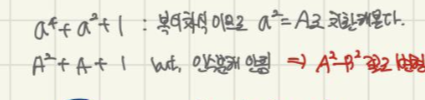 a⁴+a²+1 : 복이차식 이므로 a²=A로 치환해본다.
A²+A+1 but, 인수분해 안됨 ⇒ A²-B² 꼴로 변형